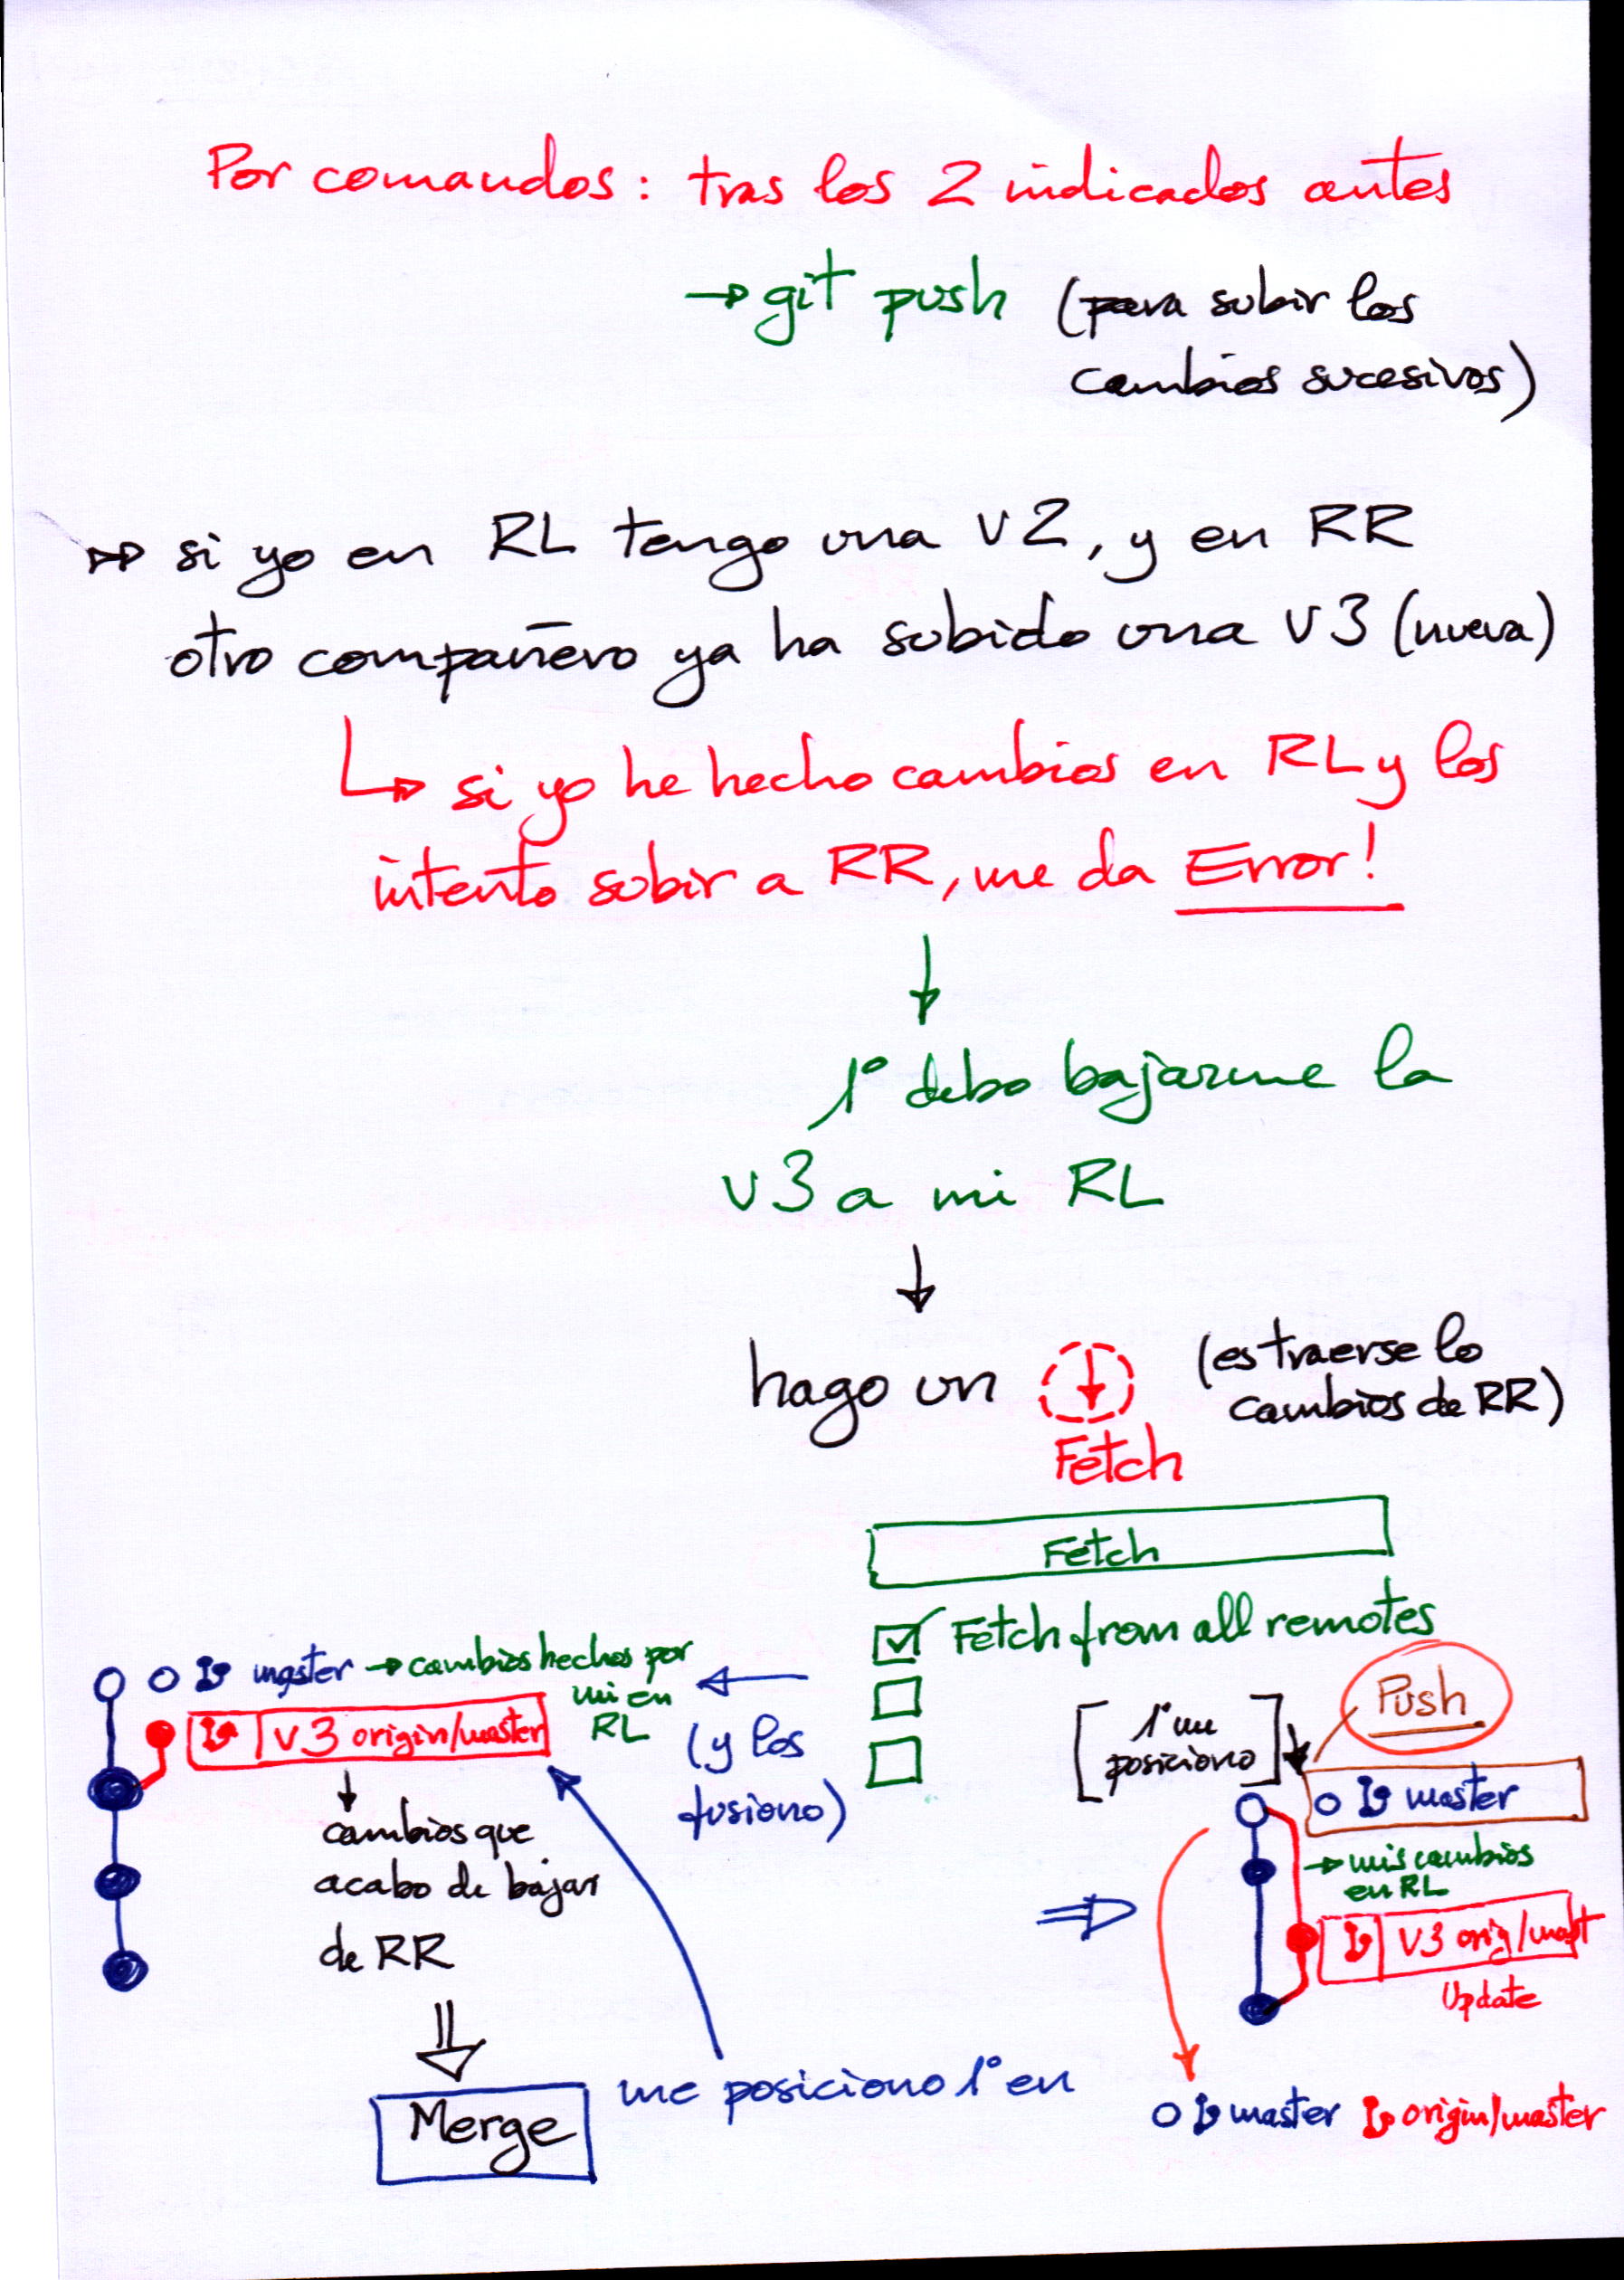 Por comandos: tras los 2 indicados antes
→ git push (para subir los
cambios sucesivos)
→ si yo en RL tengo una v2, y en RR
otro compañero ya ha subido una v3 (nueva)
↳ si yo he hecho cambios en RL y los
intento subir a RR, me da Error!
↓
1º debo bajarme la
v3 a mi RL
↓
hago un (es traerse lo
cambios de RR)
Fetch
Fetch
☑ Fetch from all remotes
master → cambios hechos por
mi en
RL
v3 origin/master
↓
cambios que
acabo de bajar
de RR
(y los
fusiono)
Merge
me posiciono 1º en
[1º me
posiciono]
Push
master
→ mis cambios
en RL
v3 orig/mast
Update
master origin/master